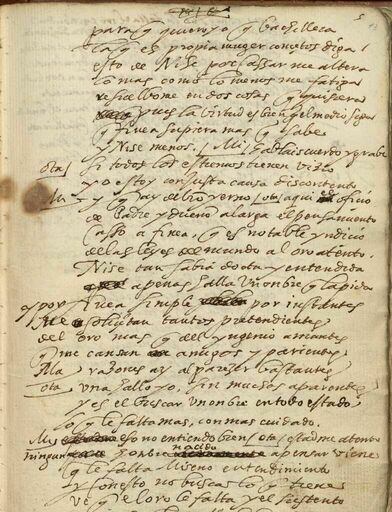 para q̃ quiero yo q̃ bachillera
la q̃ es propia muger concetos diga
esto de Nise por casar me altera
lo mas como lo menos me fatiga
resoluedme en dos cosas q̃ quisiera
pues la virtud es bien q̃ el medio siga
q̃ finea supiera mas q̃ sabe
y Nise menos. / Mi / hablais cuerdo y graue
ota / si todos los estremos tienen vicio
yo estoy con justa causa discontento
Mi / y q̃ ay de vro yerno / ota / aqui el oficio
de Padre y dueño alarga el pensamiento
caso a finea, q̃ es notable yndicio
de las leyes del mundo al oro atento.
Nise tan sabia docta y entendida
apenas halla vn onbre q̃ la pida
y por finea simple por instantes
me solicitan tantos pretendientes
del oro mas q̃ del yngenio amantes
q̃ me cansan amigos y parientes
Mi / razones ay al parezer bastantes
ota / vna hallo yo, sin muchas aparentes
y es el buscar vn onbre en todo estado
lo q̃ le falta mas, con mas cuidado.
Mis eso no entiendo bien / ota / estadme atento
ningun onbre nacido a pensar viene
q̃ le falta Miseno entendimiento
y con esto no busca lo q̃ tiene
ve q̃ el oro le falta y el sustento